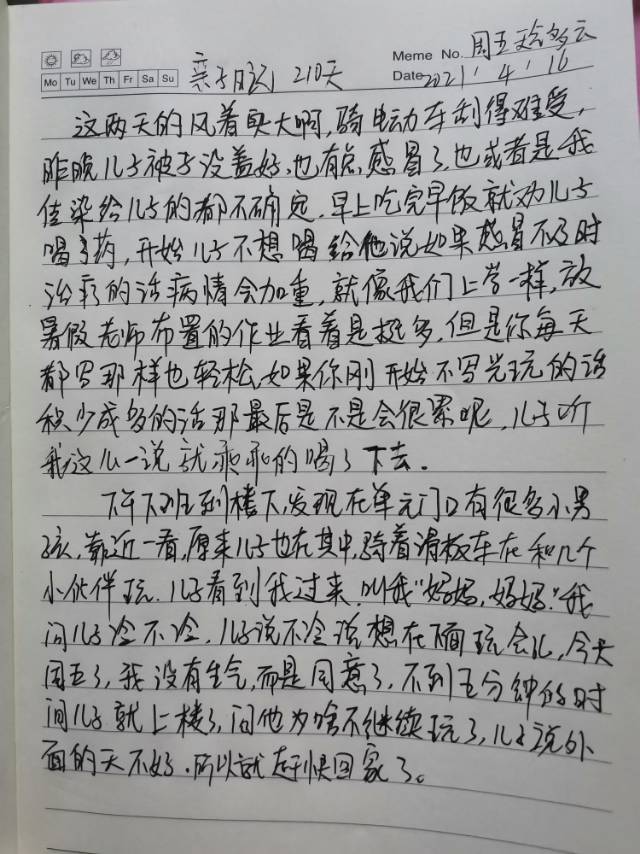 Meme No. 周五 多云
Mo Tu We Th Fr Sa Su 亲子日记 210天 Date 2021.4.16
这两天的风着实大啊,骑电动车刮得难受,
昨晚儿子被子没盖好,也有点感冒了,也或者是我
传染给儿子的都不确定,早上吃完早饭就劝儿子
喝了药,开始儿子不想喝给他说如果感冒不及时
治疗的话病情会加重,就像我们上学一样,放
暑假老师布置的作业看着是挺多,但是你每天
都写那样也轻松,如果你刚开始不写光玩的话
积少成多的话那最后是不是会很累呢,儿子听
我这么一说就乖乖的喝了下去。
下午下班到楼下,发现在单元门口有很多小男
孩,靠近一看,原来儿子也在其中,骑着滑板车在和几个
小伙伴玩,儿子看到我过来,叫我“妈妈,妈妈”我
问儿子冷不冷,儿子说不冷说想在下面玩会儿,今天
周五了,我没有生气,而是同意了,不到五分钟的时
间儿子就上楼了,问他为啥不继续玩了,儿子说外
面的天不好,所以就赶快回家了。